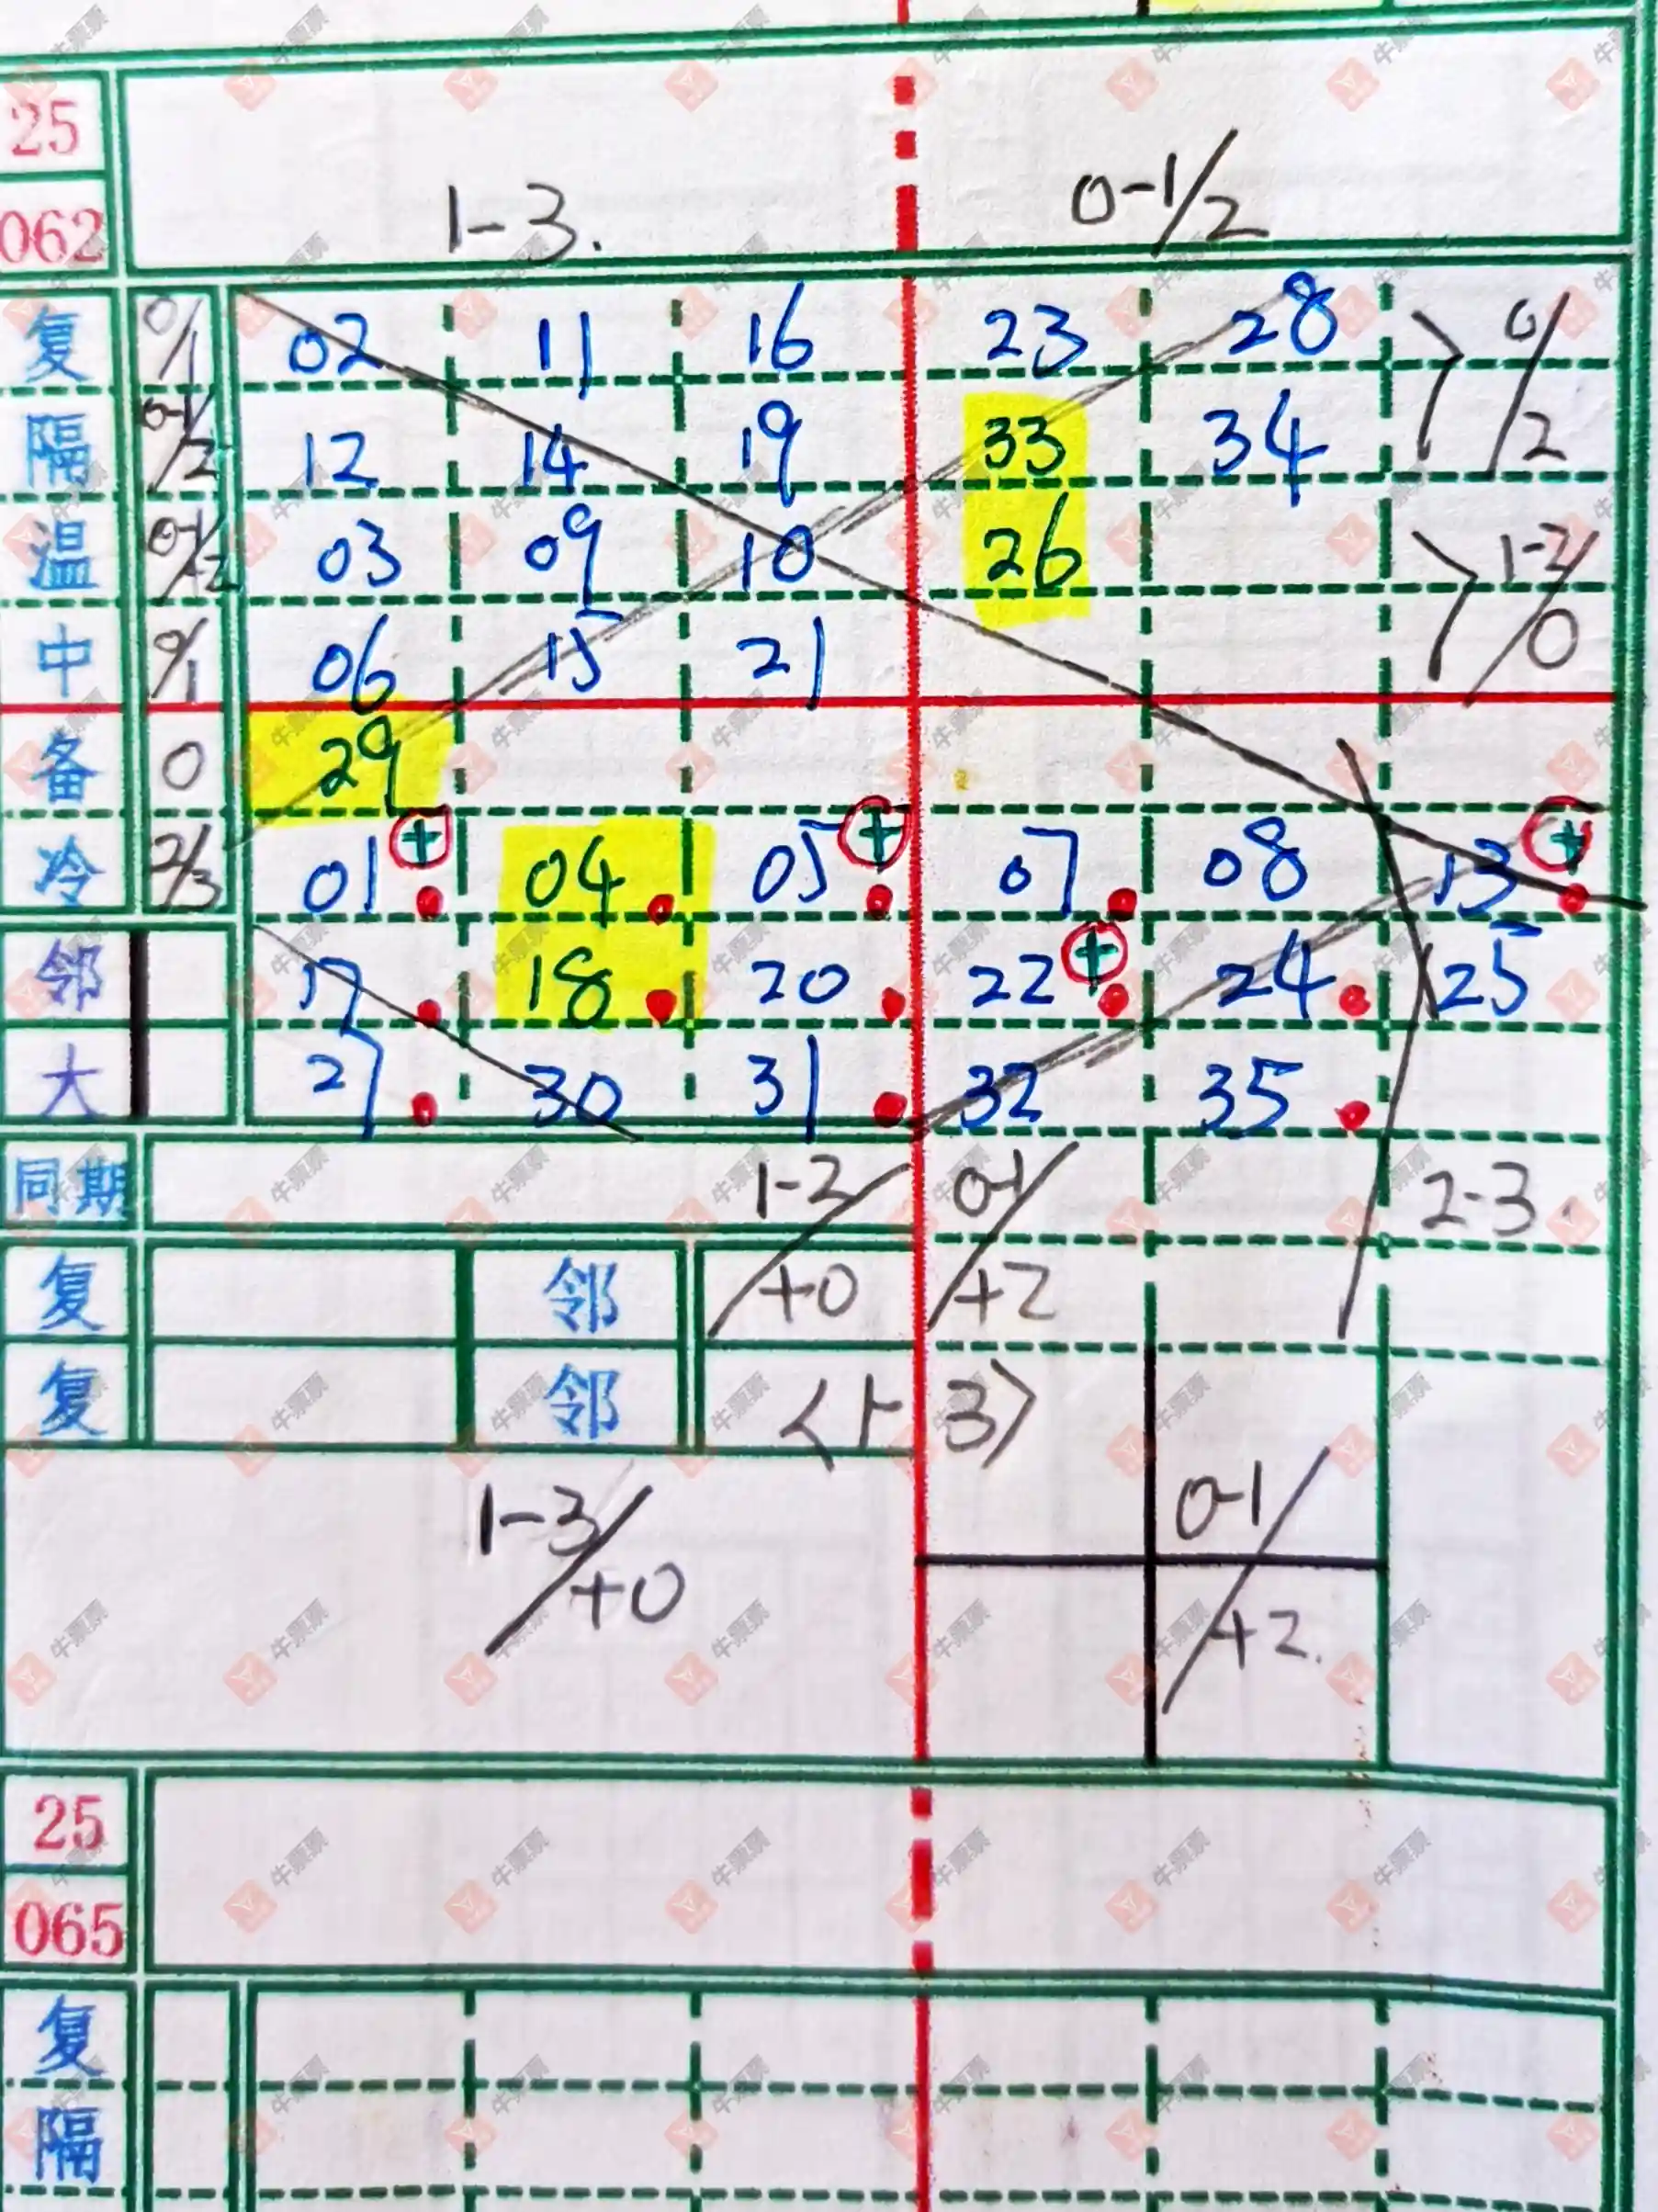 25
062 1-3. 0-1/2
复 0/1 02 11 16 23 28 0/2
隔 0-1/2 12 14 19 33 34
温 0-1/+2 03 09 10 26 1-2/0
中 0/1 06 15 21
备 0 29
冷 2/3 01 + 04 05 + 07 08 13 +
邻 17 18 20 22 + 24 25
大 27 30 31 32 35
同期 1-2/+0 0-1/+2 2-3.
复 邻
复 邻 <1-3>
1-3/+0 0-1/+2.
25
065
复
隔
牛票票